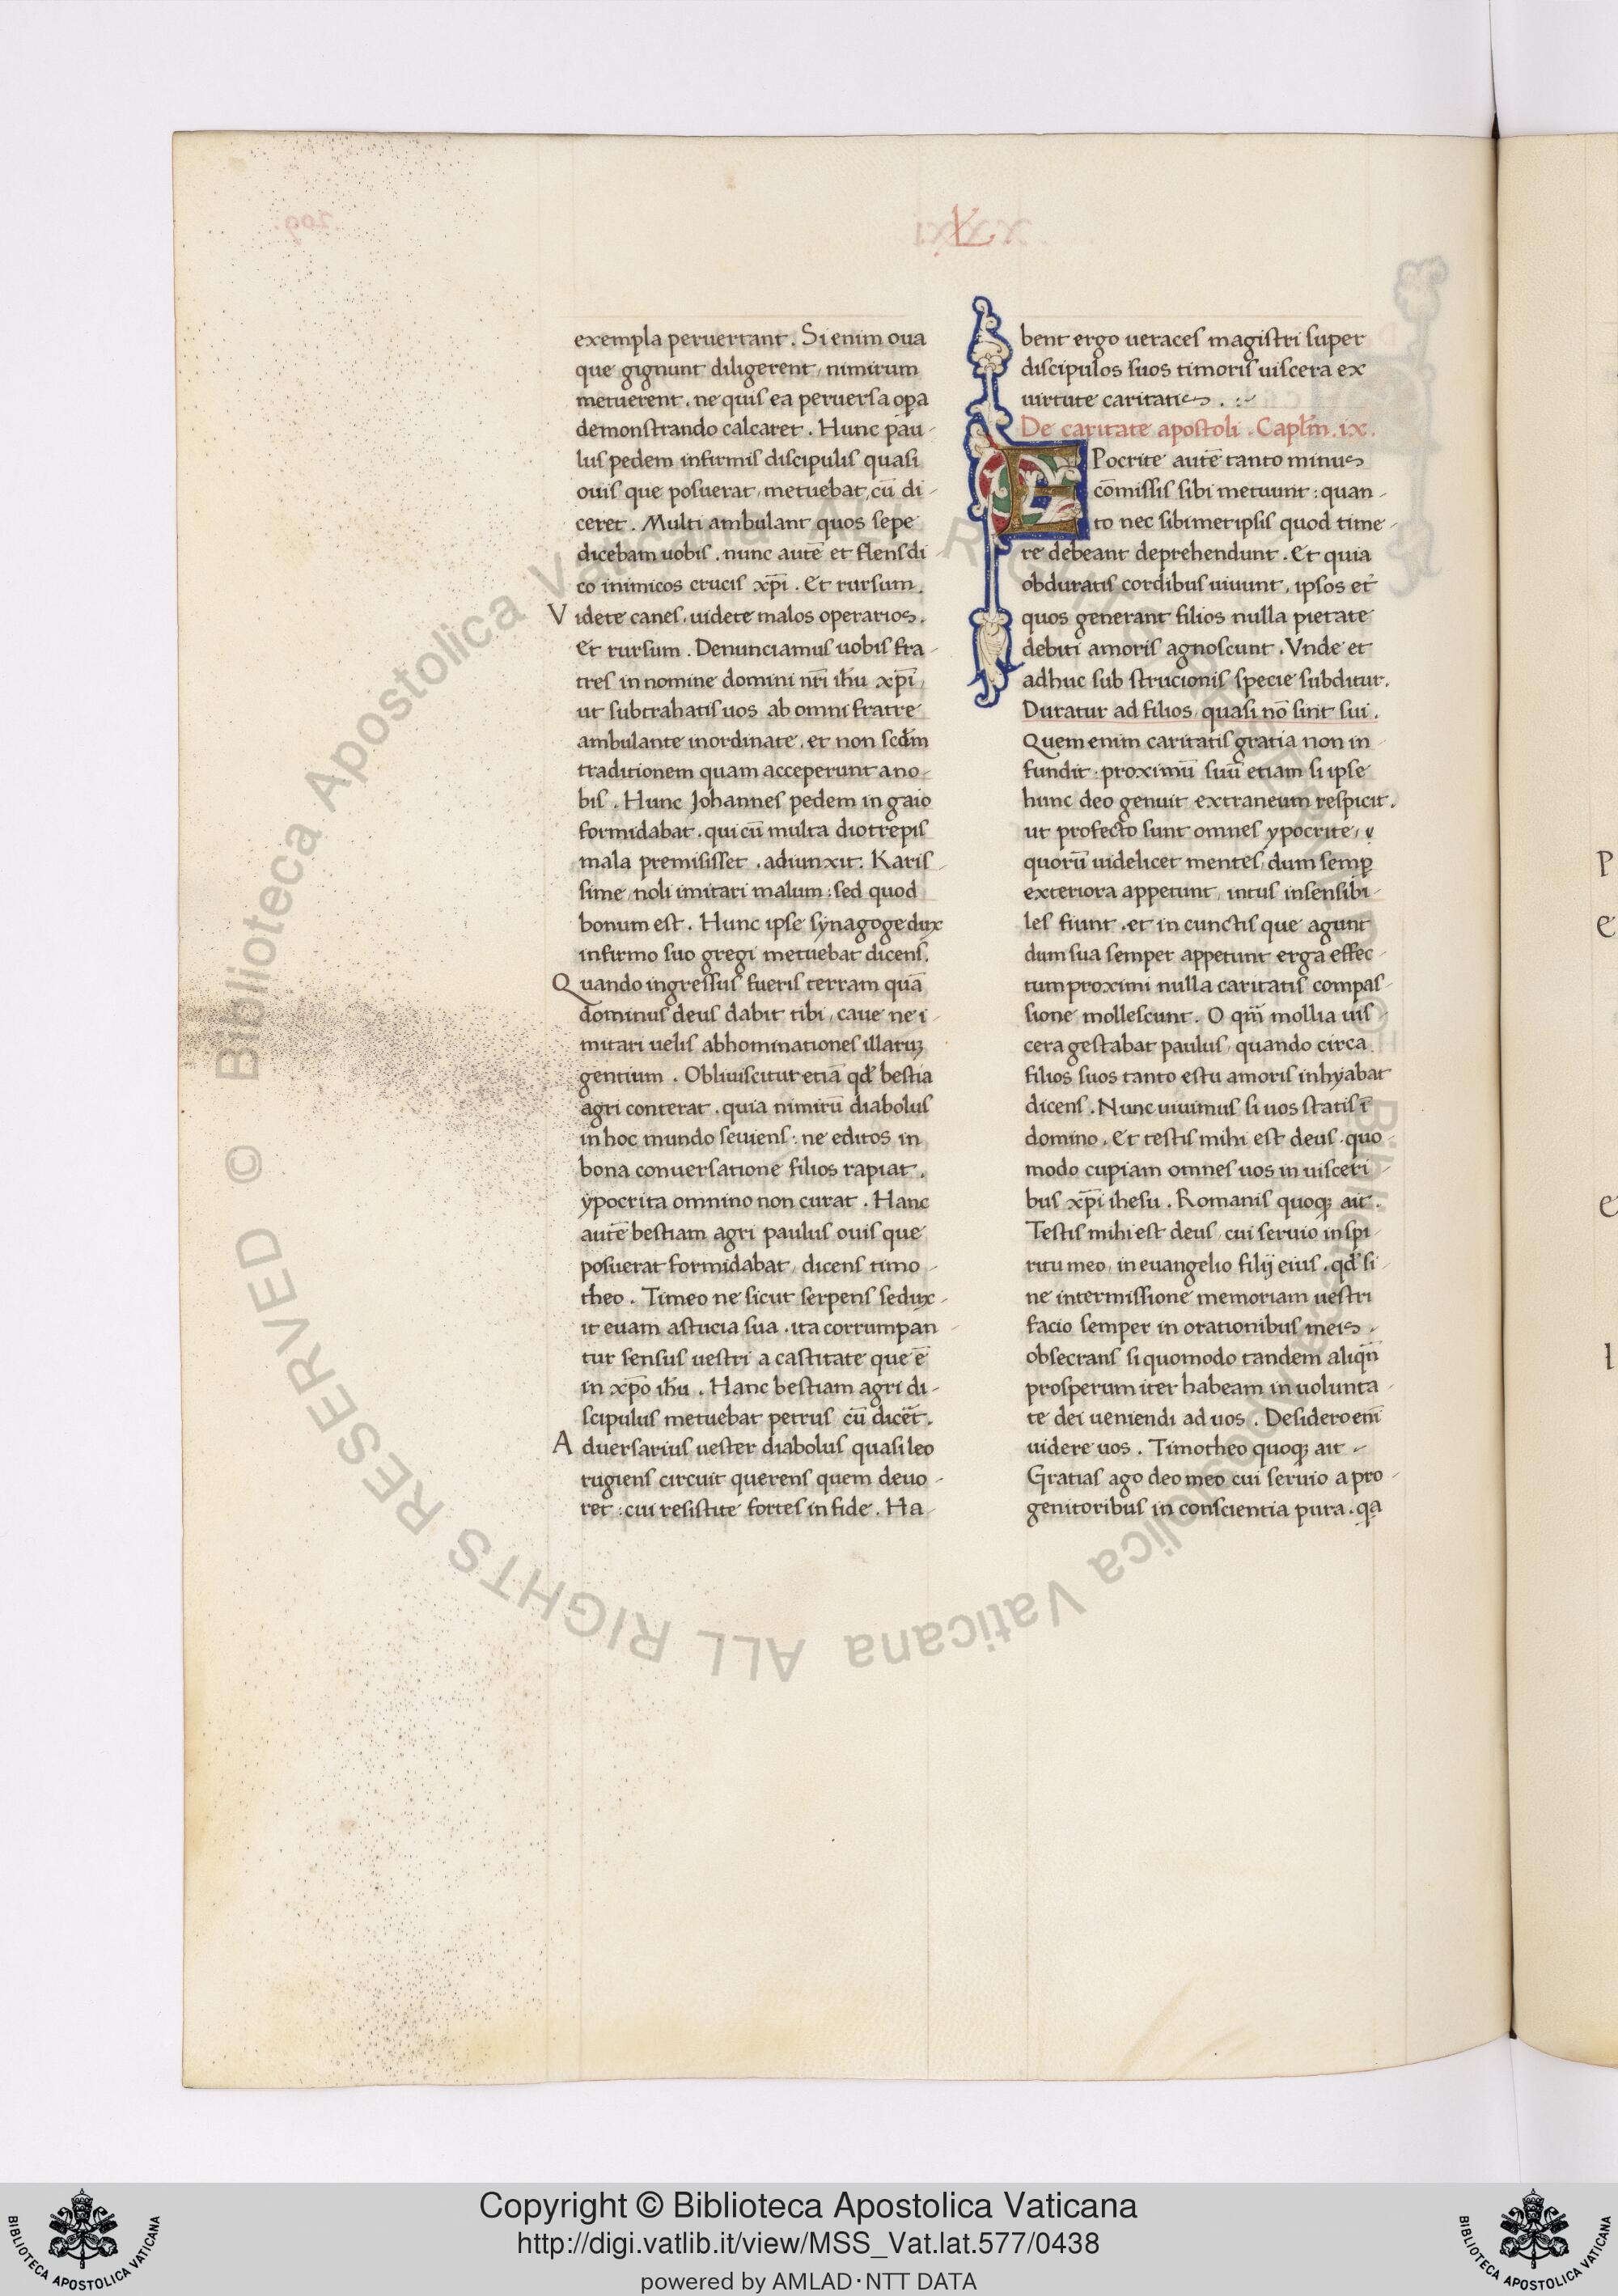 L
exempla peruertant. Si enim oua
que gignunt diligerent, nimirum
metuerent. ne quis ea peruersa oꝑa
demonstrando calcaret. Hunc pau-
lus pedem infirmis discipulis quasi
ouis que posuerat, metuebat, cū di-
ceret. Multi ambulant quos sepe
dicebam uobis. nunc autē et flens di-
co inimicos crucis xp̄i. Et rursum.
Videte canes, uidete malos operarios.
Et rursum. Denunciamus uobis fra-
tres in nomine domini nr̄i ih̄u xp̄i,
ut subtrahatis uos ab omni fratre
ambulante inordinate. et non scd̄m
traditionem quam acceperunt a no-
bis. Hunc Johannes pedem in gaio
formidabat. qui cū multa diotrepis
mala premisisset. adiunxit. Karis-
sime, noli imitari malum: sed quod
bonum est. Hunc ipse synagoge dux
infirmo suo gregi metuebat dicens.
Quando ingressus fueris terram quā
dominus deus dabit tibi, caue ne i-
mitari uelis abhominationes illaruꝫ
gentium. Obliuiscitur etiā qd̄ bestia
agri conterat. quia nimirū diabolus
in hoc mundo seuiens: ne editos in
bona conuersatione filios rapiat.
ypocrita omnino non curat. Hanc
autē bestiam agri paulus ouis que
posuerat formidabat, dicens timo-
theo. Timeo ne sicut serpens sedux-
it euam astucia sua. ita corrumpan-
tur sensus uestri a castitate que ē
in xp̄o ih̄u. Hanc bestiam agri di-
scipulus metuebat petrus cū dicēt.
Aduersarius uester diabolus quasi leo
rugiens circuit querens quem deuo-
ret: cui resistite fortes in fide. Ha
bent ergo ueraces magistri super
discipulos suos timoris uiscera ex
uirtute caritatis. :-
De caritate apostoli. Capl̄m. ix.
YPocrite autē tanto minus
cōmissis sibi metuunt: quan-
to nec sibimetipsis quod time-
re debeant deprehendunt. Et quia
obduratis cordibus uiuunt, ipsos et
quos generant filios nulla pietate
debiti amoris agnoscunt. Vnde et
adhuc sub strucionis specie subditur.
Duratur ad filios, quasi nō sint sui.
Quem enim caritatis gratia non in-
fundit: proximū suū etiam si ipse
hunc deo genuit extraneum respicit.
ut profecto sunt omnes ypocrite,
quorū uidelicet mentes, dum semꝑ
exteriora appetunt, intus insensibi-
les fiunt. et in cunctis que agunt
dum sua semper appetunt erga effec-
tum proximi nulla caritatis compas-
sione mollescunt. O qm̄ mollia uis-
cera gestabat paulus, quando circa
filios suos tanto estu amoris inhyabat
dicens. Nunc uiuimus si uos statis ī
domino. Et testis mihi est deus. quo-
modo cupiam omnes uos in uisceri-
bus xp̄i ihesu. Romanis quoqꝫ ait.
Testis mihi est deus, cui seruio in spi-
ritu meo, in euangelio filij eius. qd̄ si-
ne intermissione memoriam uestri
facio semper in orationibus meis.
obsecrans si quomodo tandem aliqn̄
prosperum iter habeam in uolunta-
te dei ueniendi ad uos. Desidero eni̅
uidere uos. Timotheo quoqꝫ ait-
Gratias ago deo meo cui seruio a pro-
genitoribus in conscientia pura. qa
© Biblioteca Apostolica Vaticana ALL RIGHTS RESERVED
Copyright © Biblioteca Apostolica Vaticana
http://digi.vatlib.it/view/MSS_Vat.lat.577/0438
powered by AMLAD·NTT DATA
BIBLIOTECA APOSTOLICA VATICANA
BIBLIOTECA APOSTOLICA VATICANA